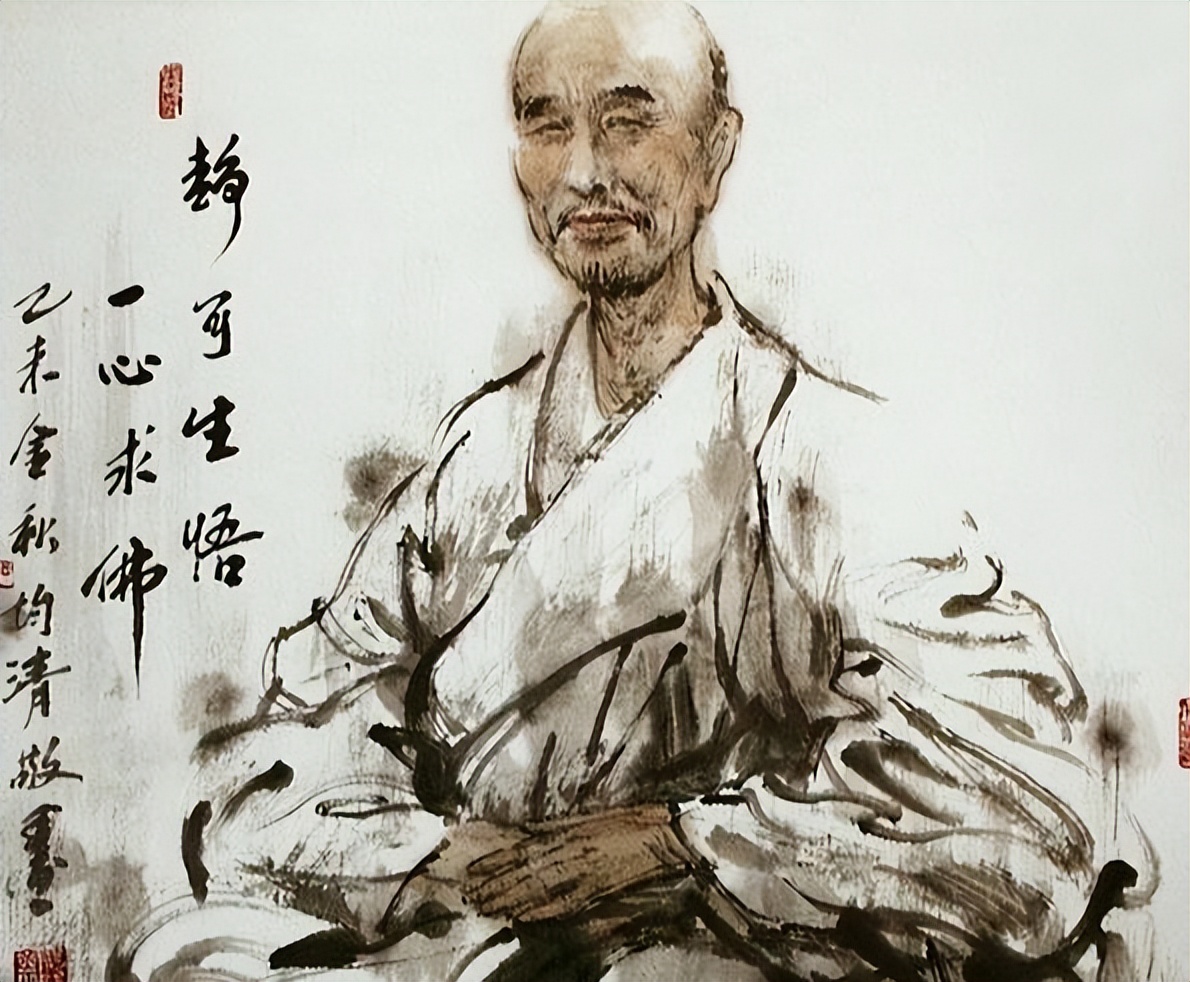 静可生悟
一心求佛
乙未金秋均清敬画